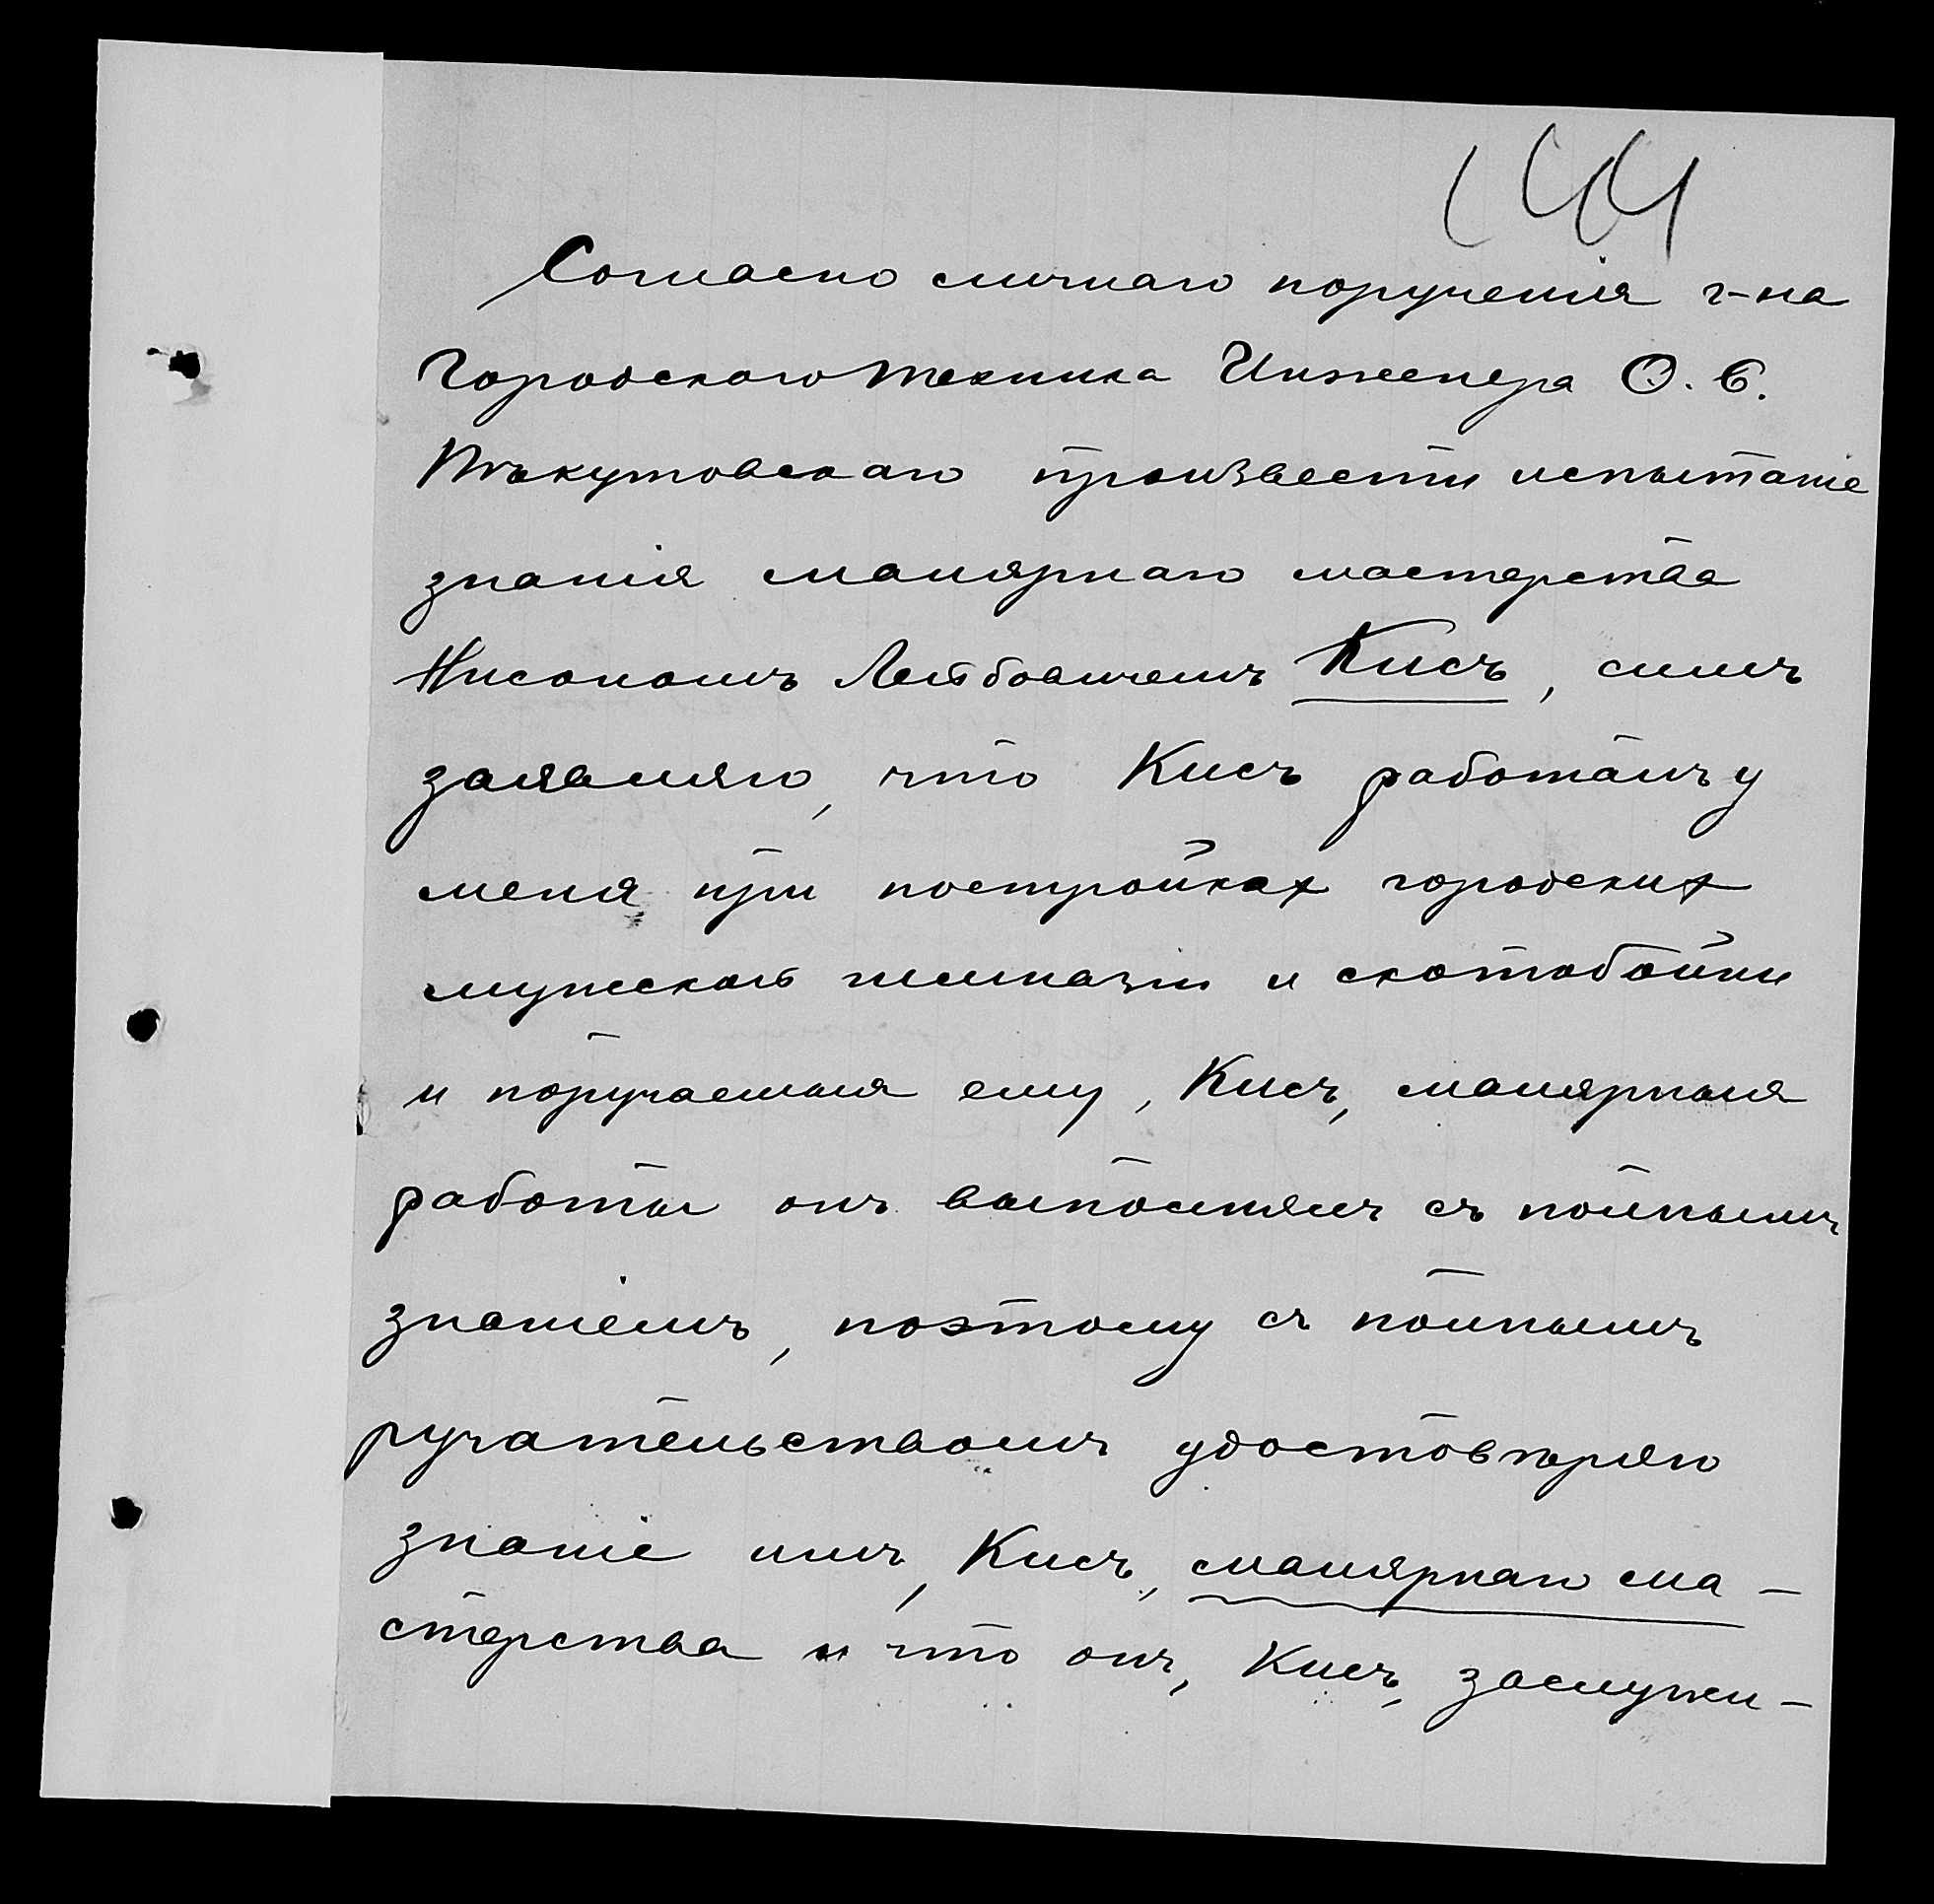 144
Согласно личнаго порученія г-на
Городского техника Инженера О. Е.
произвести испытаніе
знанія малярнаго мастерства
Нисономъ Лейбовичемъ Кисъ, симъ
заявляю, что Кисъ работалъ у
меня при постройках городских
мужской гимназіи и скотобойни
и поручаемыя ему, Кисъ, малярныя
работы онъ выполнялъ съ полнымъ
знаніемъ, поэтому съ полнымъ
ручательствомъ удостовѣряю
знаніе имъ, Кисъ, малярнаго ма-
стерства и что онъ, Кисъ, заслужи-